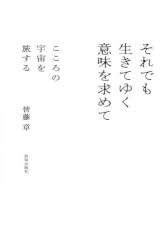 それでも
生きてゆく
意味を求めて
こころの
宇宙を
旅する
皆藤 章